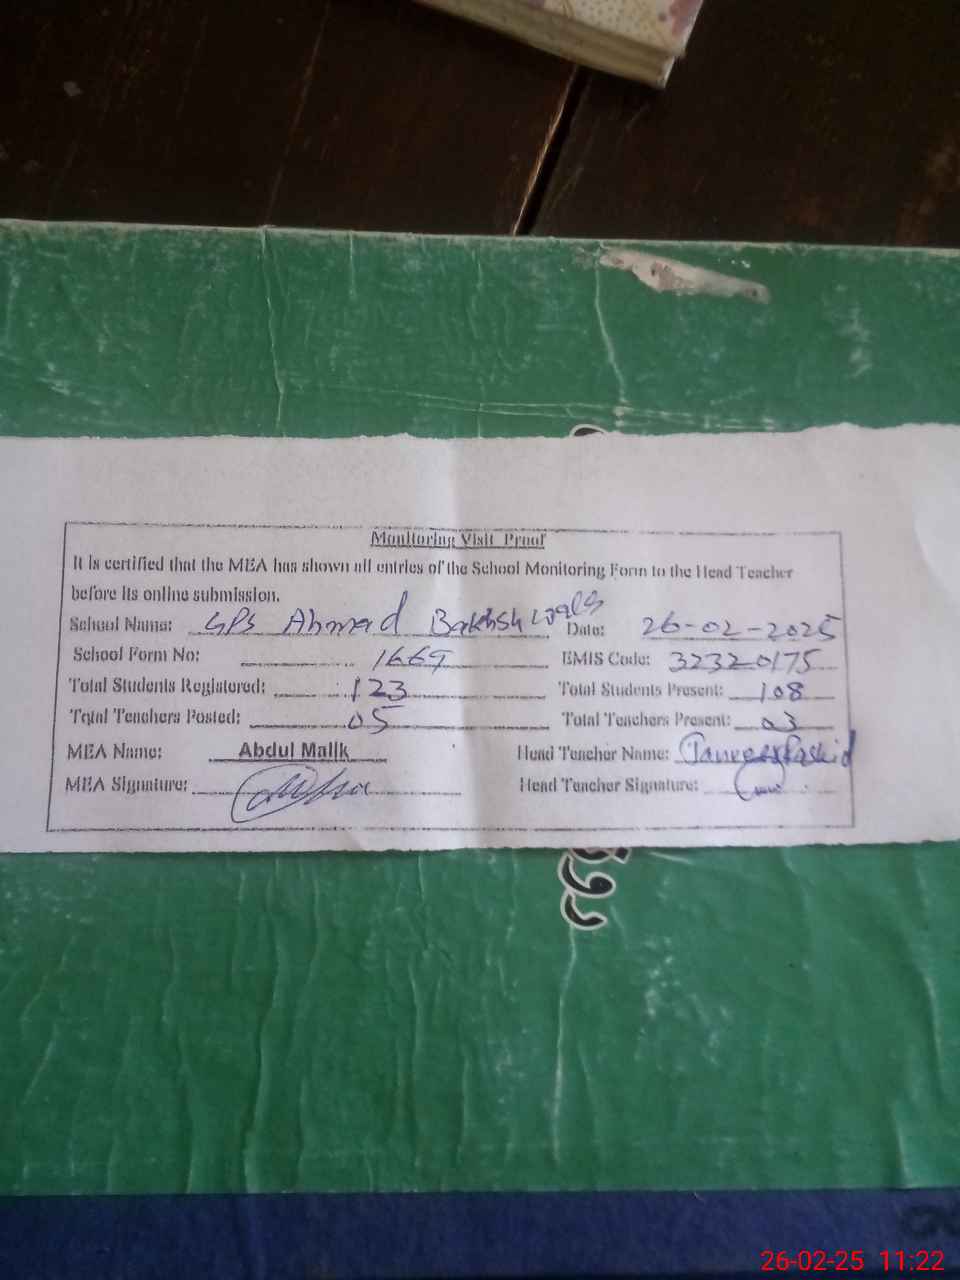 Monitoring Visit Proof
It is certified that the MEA has shown all entries of the School Monitoring Form to the Head Teacher
before its online submission.
School Name: GPS Ahmad Bakhsh wala Date: 26-02-2025
School Form No: 1669 EMIS Code: 32320175
Total Students Registered: 123 Total Students Present: 108
Total Teachers Posted: 05 Total Teachers Present: 03
MEA Name: Abdul Malik Head Teacher Name: Tanveer Rashid
MEA Signature: Head Teacher Signature:
26-02-25 11:22